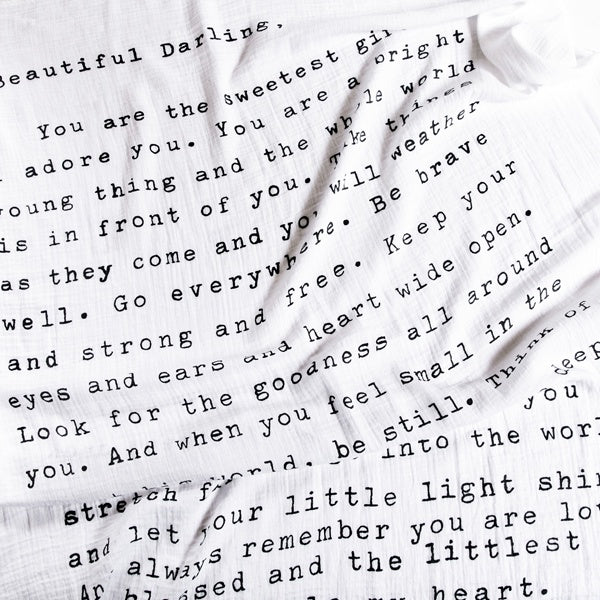 Beautiful Darling,
You are the sweetest
adore you. You are a bright
young thing and the whole world
is in front of you. Take things
as they come and you will weather
well. Go everywhere. Be brave
and strong and free. Keep your
eyes and ears and heart wide open.
Look for the goodness all around
you. And when you feel small in the
world, be still. Think of
stretch into the
deep
you
and let your little light
always remember you are
and the littlest
my heart.